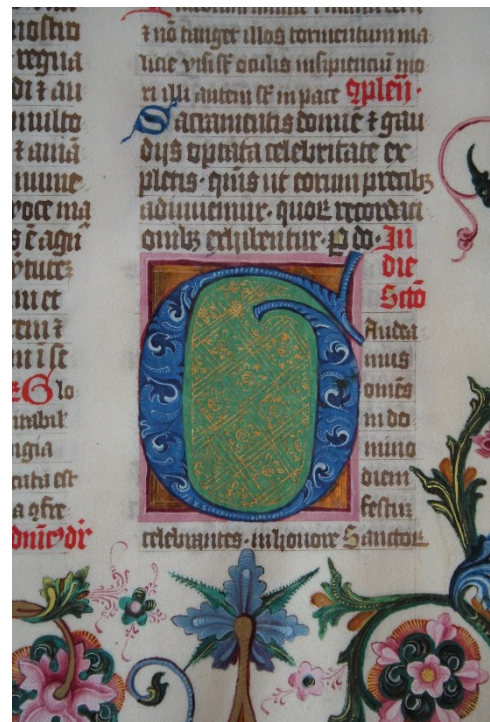 nostro
regna
di ⁊ au
multo
⁊ aniā
nume
voce ma
s ē agn
in et
tem ⁊
Glo
ngia
a offe
⁊ nō tanget illos tormentum ma
licie visi sūt oculis insipienciū mo
ri illi autem sūt in pace Ꝯpleñ.
Sacramentis domīe ⁊ gau
dijs optata celebritate ex
pletis. qūs ut eorum precibꝫ
adiuuemur. quoꝝ recordaci
onibꝫ exhibentur. P d. In
die
Sctō
Gaudea
mus
omēs
in do
mino
diem
festū
celebrantes. in honore Sanctoꝝ